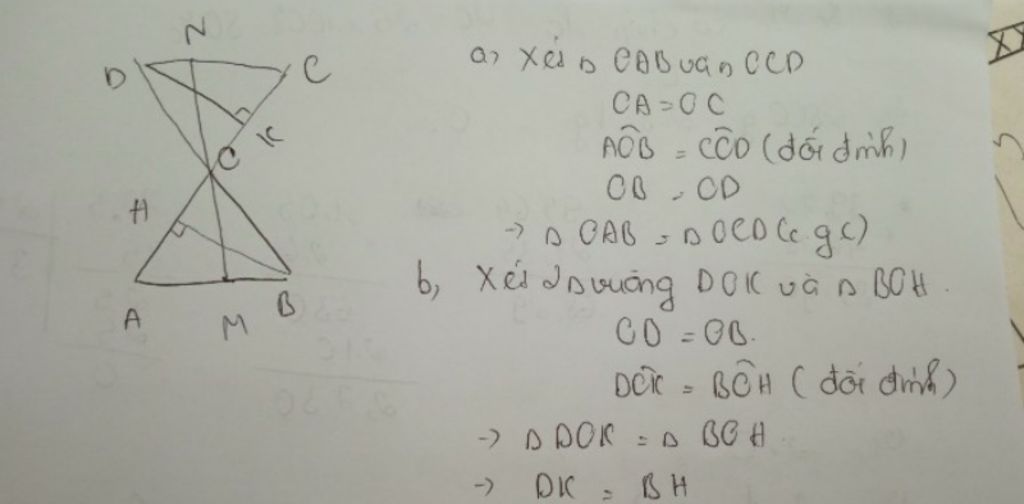 N
D
C
K
O
H
A
M
B
a, Xét Δ OAB và Δ OCD
OA = OC
AÔB = CÔD (đối đỉnh)
OB = OD
→ Δ OAB = Δ OCD (c.g.c)
b, Xét 2Δ vuông DOK và Δ BOH.
OD = OB.
DÔK = BÔH (đối đỉnh)
→ Δ DOK = Δ BOH
→ DK = BH